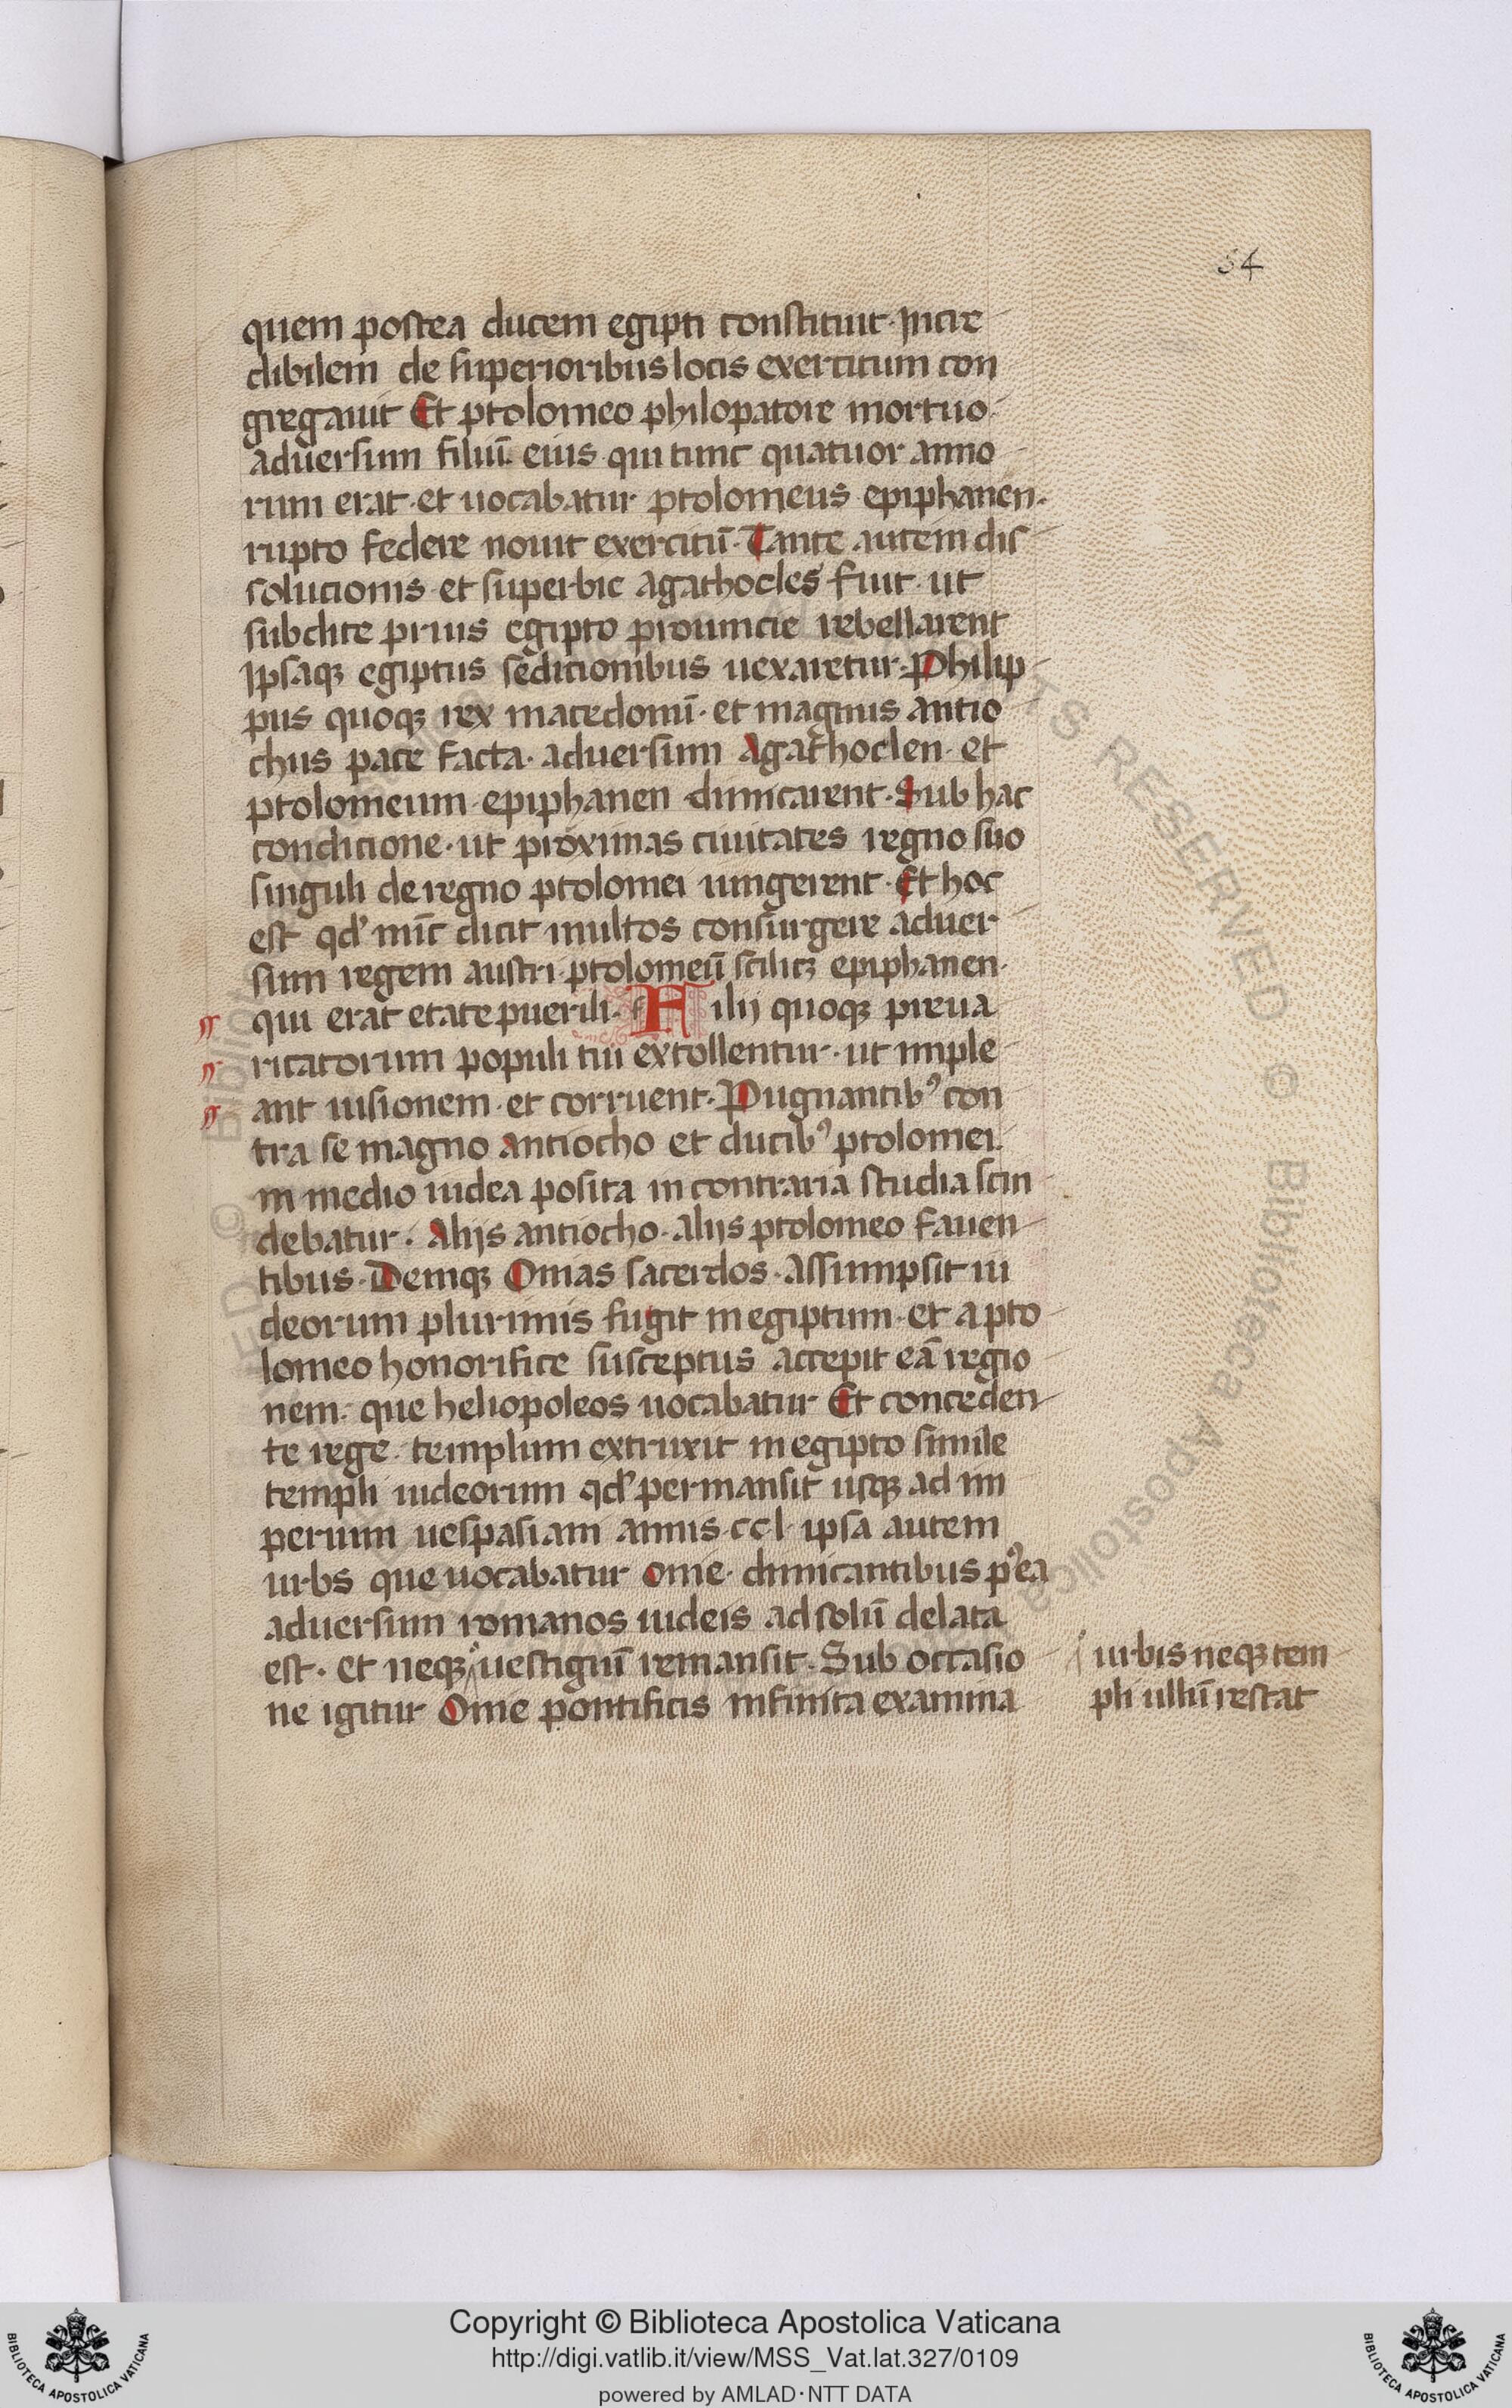 54
quem postea ducem egipti constituit. Incre
dibilem de superioribus locis exercitum con
gregauit Et ptolomeo philopatore mortuo.
aduersum filiū. eius qui tunc quatuor anno
rum erat. et uocabatur ptolomeus epiphanen.
rupto federe nouit exercitū. Tante autem dis
solucionis et superbie agathocles fuit. ut
subdite prius egipto prouincie rebellarent
ipsaqꝫ egiptus sedicionibus uexaretur. Philip
pus quoqꝫ rex macedonū. et magnus antio
chus pace facta. aduersum Agathoclen. et
ptolomeum epiphanen dimicarent. Sub hac
condicione. ut proximas ciuitates regno suo
singuli de regno ptolomei iungerent. Et hoc
est qd' nūc dicit multos consurgere aduer
sum regem austri. ptolomeū scilicꝫ epiphanen.
qui erat etate puerili. Filij quoqꝫ preua
ricatorum populi tui extollentur. ut imple
ant uisionem. et corruent. Pugnantib' con
tra se magno Antiocho et ducib' ptolomei.
in medio iudea posita in contraria studia scin
debatur. Alijs antiocho. alijs ptolomeo fauen
tibus. Deniqꝫ Onias sacerdos. Assumpsit iu
deorum plurimis fugit in egiptum. et a pto
lomeo honorifice susceptus accepit eā regio
nem. que heliopoleos uocabatur Et conceden
te rege. templum extruxit in egipto simile
templi iudeorum qd' permansit usqꝫ ad im
perium uespasiani annis. ccl. ipsa autem
urbs que uocabatur onie. dimicantibus p'ea
aduersum romanos iudeis ad solū delata
est. et neqꝫ uestigiū remansit. Sub occasio
ne igitur Onie pontificis infinita examina
urbis neqꝫ tem
pli ullū restat
Copyright © Biblioteca Apostolica Vaticana
http://digi.vatlib.it/view/MSS_Vat.lat.327/0109
powered by AMLAD·NTT DATA
BIBLIOTECA APOSTOLICA VATICANA
BIBLIOTECA APOSTOLICA VATICANA